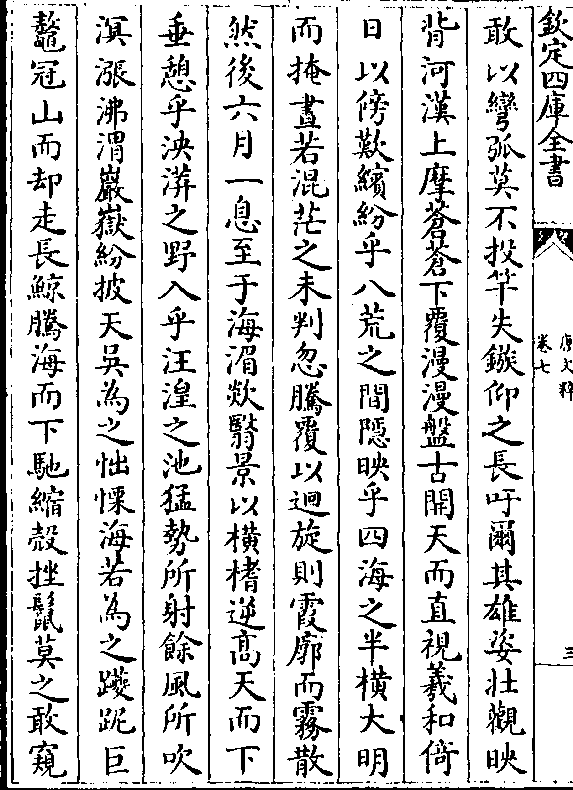 欽定四庫全書
唐文粹
卷七
三
敢以彎弧莫不投竿失鏃仰之長吁爾其雄姿壯觀映
背河漢上摩蒼蒼下覆漫漫盤古開天而直視羲和倚
日以傍歎繽紛乎八荒之間隱映乎四海之半橫大明
而掩晝若混茫之未判忽騰覆以迴旋則霞廓而霧散
然後六月一息至于海湄欻翳景以橫楮逆高天而下
垂憩乎泱漭之野入乎汪湟之池猛勢所射餘風所吹
溟漲沸渭巖嶽紛披天吳為之怵慄海若為之躨跜巨
鼇冠山而却走長鯨騰海而下馳縮殻挫鬛莫之敢窺